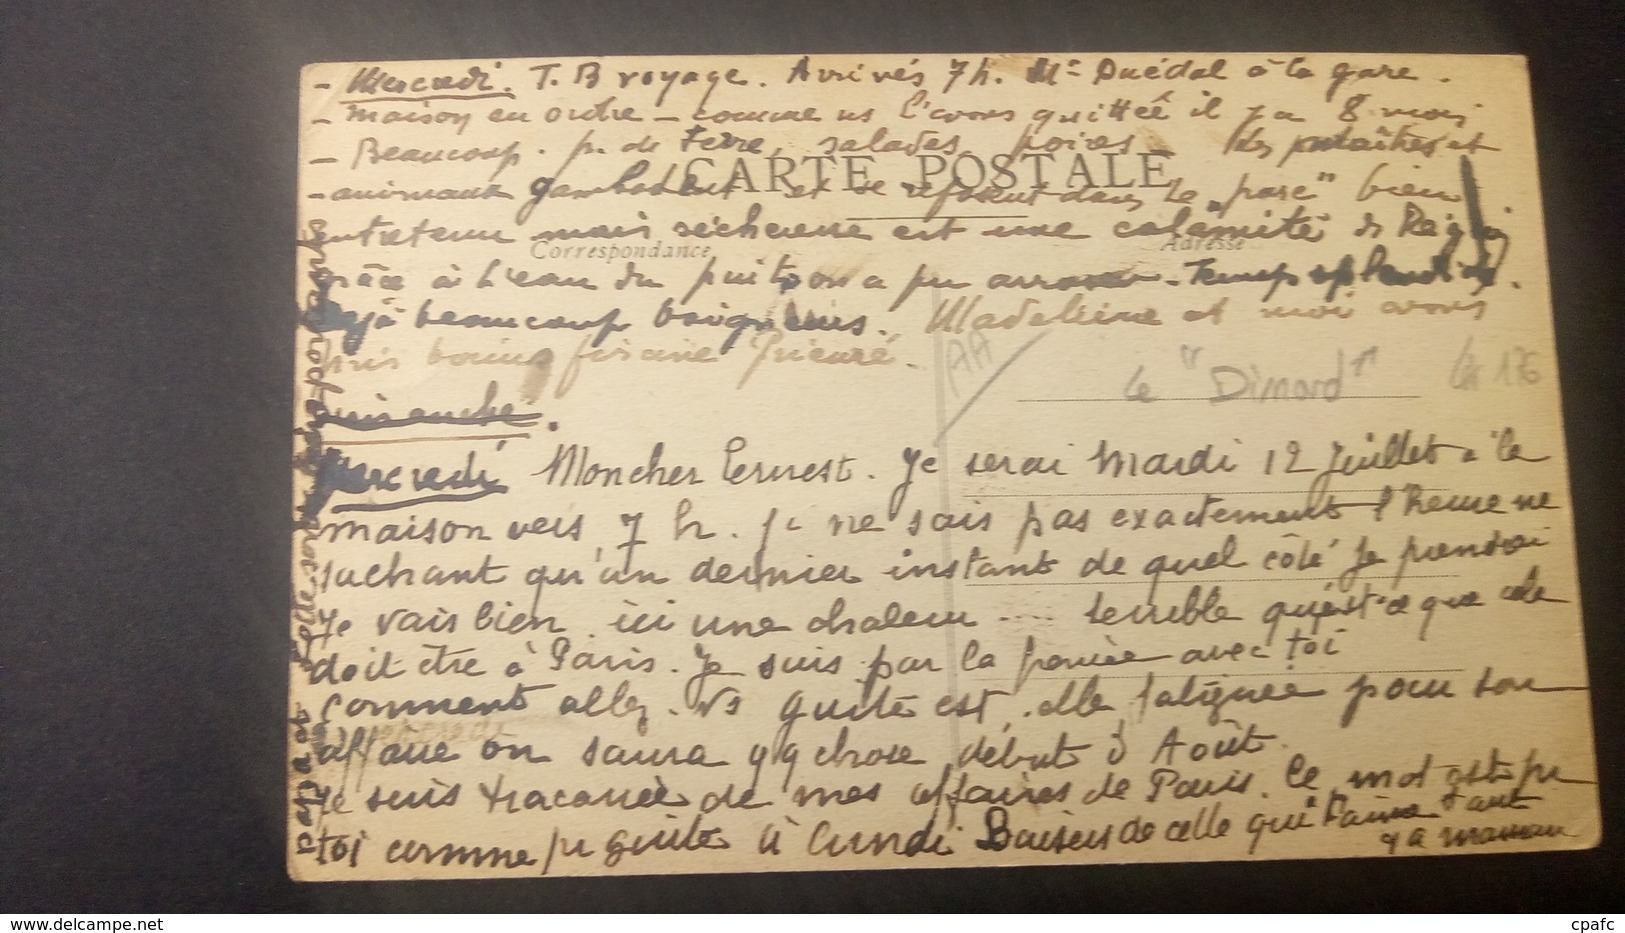 - Mercredi. T. B voyage. Arrivés 7h. Mr Duédal à la gare.
- maison en ordre - comme ns l'avons quittée il y a 8 mois
- Beaucoup. p. de terre, salades, poires les et
CARTE POSTALE
- animaux gambadent et se reposent dans le "parc" bien
entretenu mais sécheresse est une calamité
Correspondance
Adresse
grâce à l'eau du puits on a pu arroser - Temps splendide.
Déjà beaucoup baigneurs. Madeleine et moi avons
pris bains Prieuré.
AA
Le "Dinard"
176
Mercredi Mon cher Ernest. Je serai Mardi 12 Juillet à la
maison vers 7 h. je ne sais pas exactement l'heure ne
sachant qu'au dernier instant de quel côté je prendrai
Je vais bien, ici une chaleur ... terrible qu'est-ce que cela
doit être à Paris. Je suis par la pensée avec toi
comment allez-vs guite est elle fatiguée pour son
affaire on saura qq chose début d'Août.
Je suis tracassée de mes affaires de Paris. Ce mot est pr
toi comme pr guite à lundi Baisers de celle qui t'aime tant
ya maman
papa et